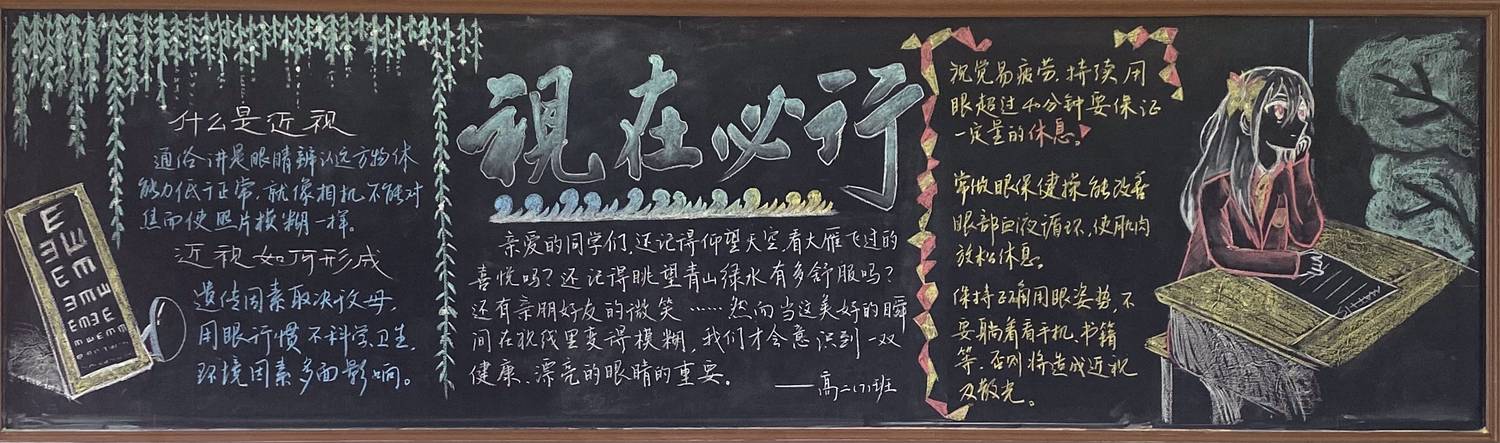 什么是近视
通俗讲是眼睛辨认远方物体
能力低于正常,就像相机不能对
焦而使照片模糊一样。
近视如何形成
遗传因素取决父母,
用眼习惯不科学卫生,
环境因素多面影响。
E
视在必行
亲爱的同学们,还记得仰望天空看大雁飞过的
喜悦吗?还记得眺望青山绿水有多舒服吗?
还有亲朋好友的微笑……然而当这美好的瞬
间在视线里变得模糊,我们才会意识到一双
健康、漂亮的眼睛的重要。
——高二(7)班
视觉易疲劳,持续用
眼超过40分钟要保证
一定量的休息
常做眼保健操能改善
眼部血液循环,使肌肉
放松休息。
保持正确用眼姿势,不
要躺着看手机、书籍
等,否则将造成近视
及散光。